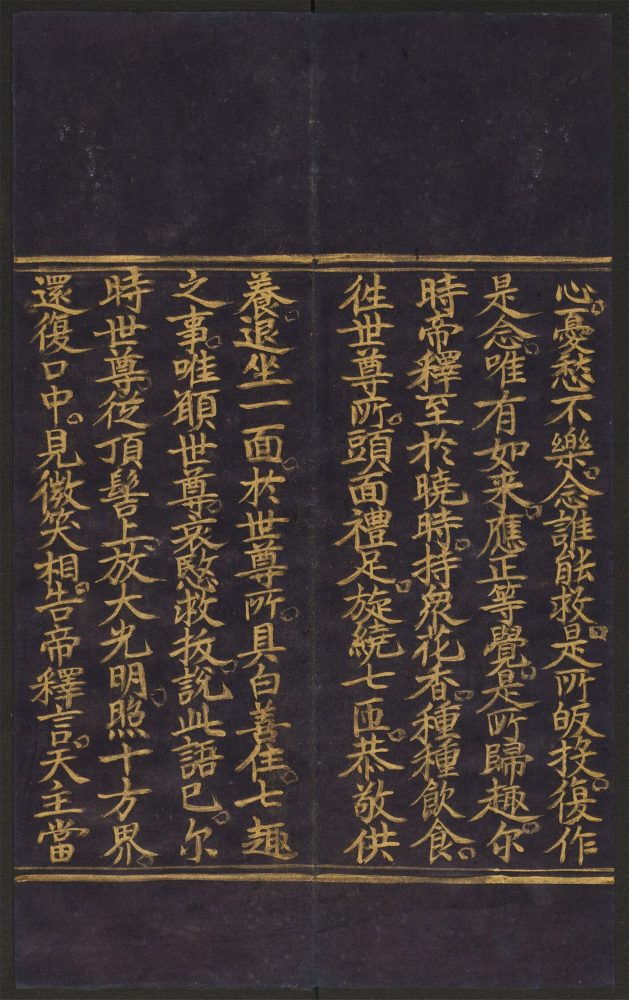 心。憂愁不樂。念誰能救。是所皈投。復作
是念。唯有如来。應正等覺。是所歸趣。尔
時帝釋至於曉時。持衆花香。種種飲食。
徃世尊所。頭面禮足。旋繞七匝。恭敬供
養。退坐一面。於世尊所。具白善住。七趣
之事。唯願世尊。哀愍救拔。說此語已。尔
時世尊。從頂髻上。放大光明。照十方界。
還復口中。見微笑相。告帝釋言。天主當